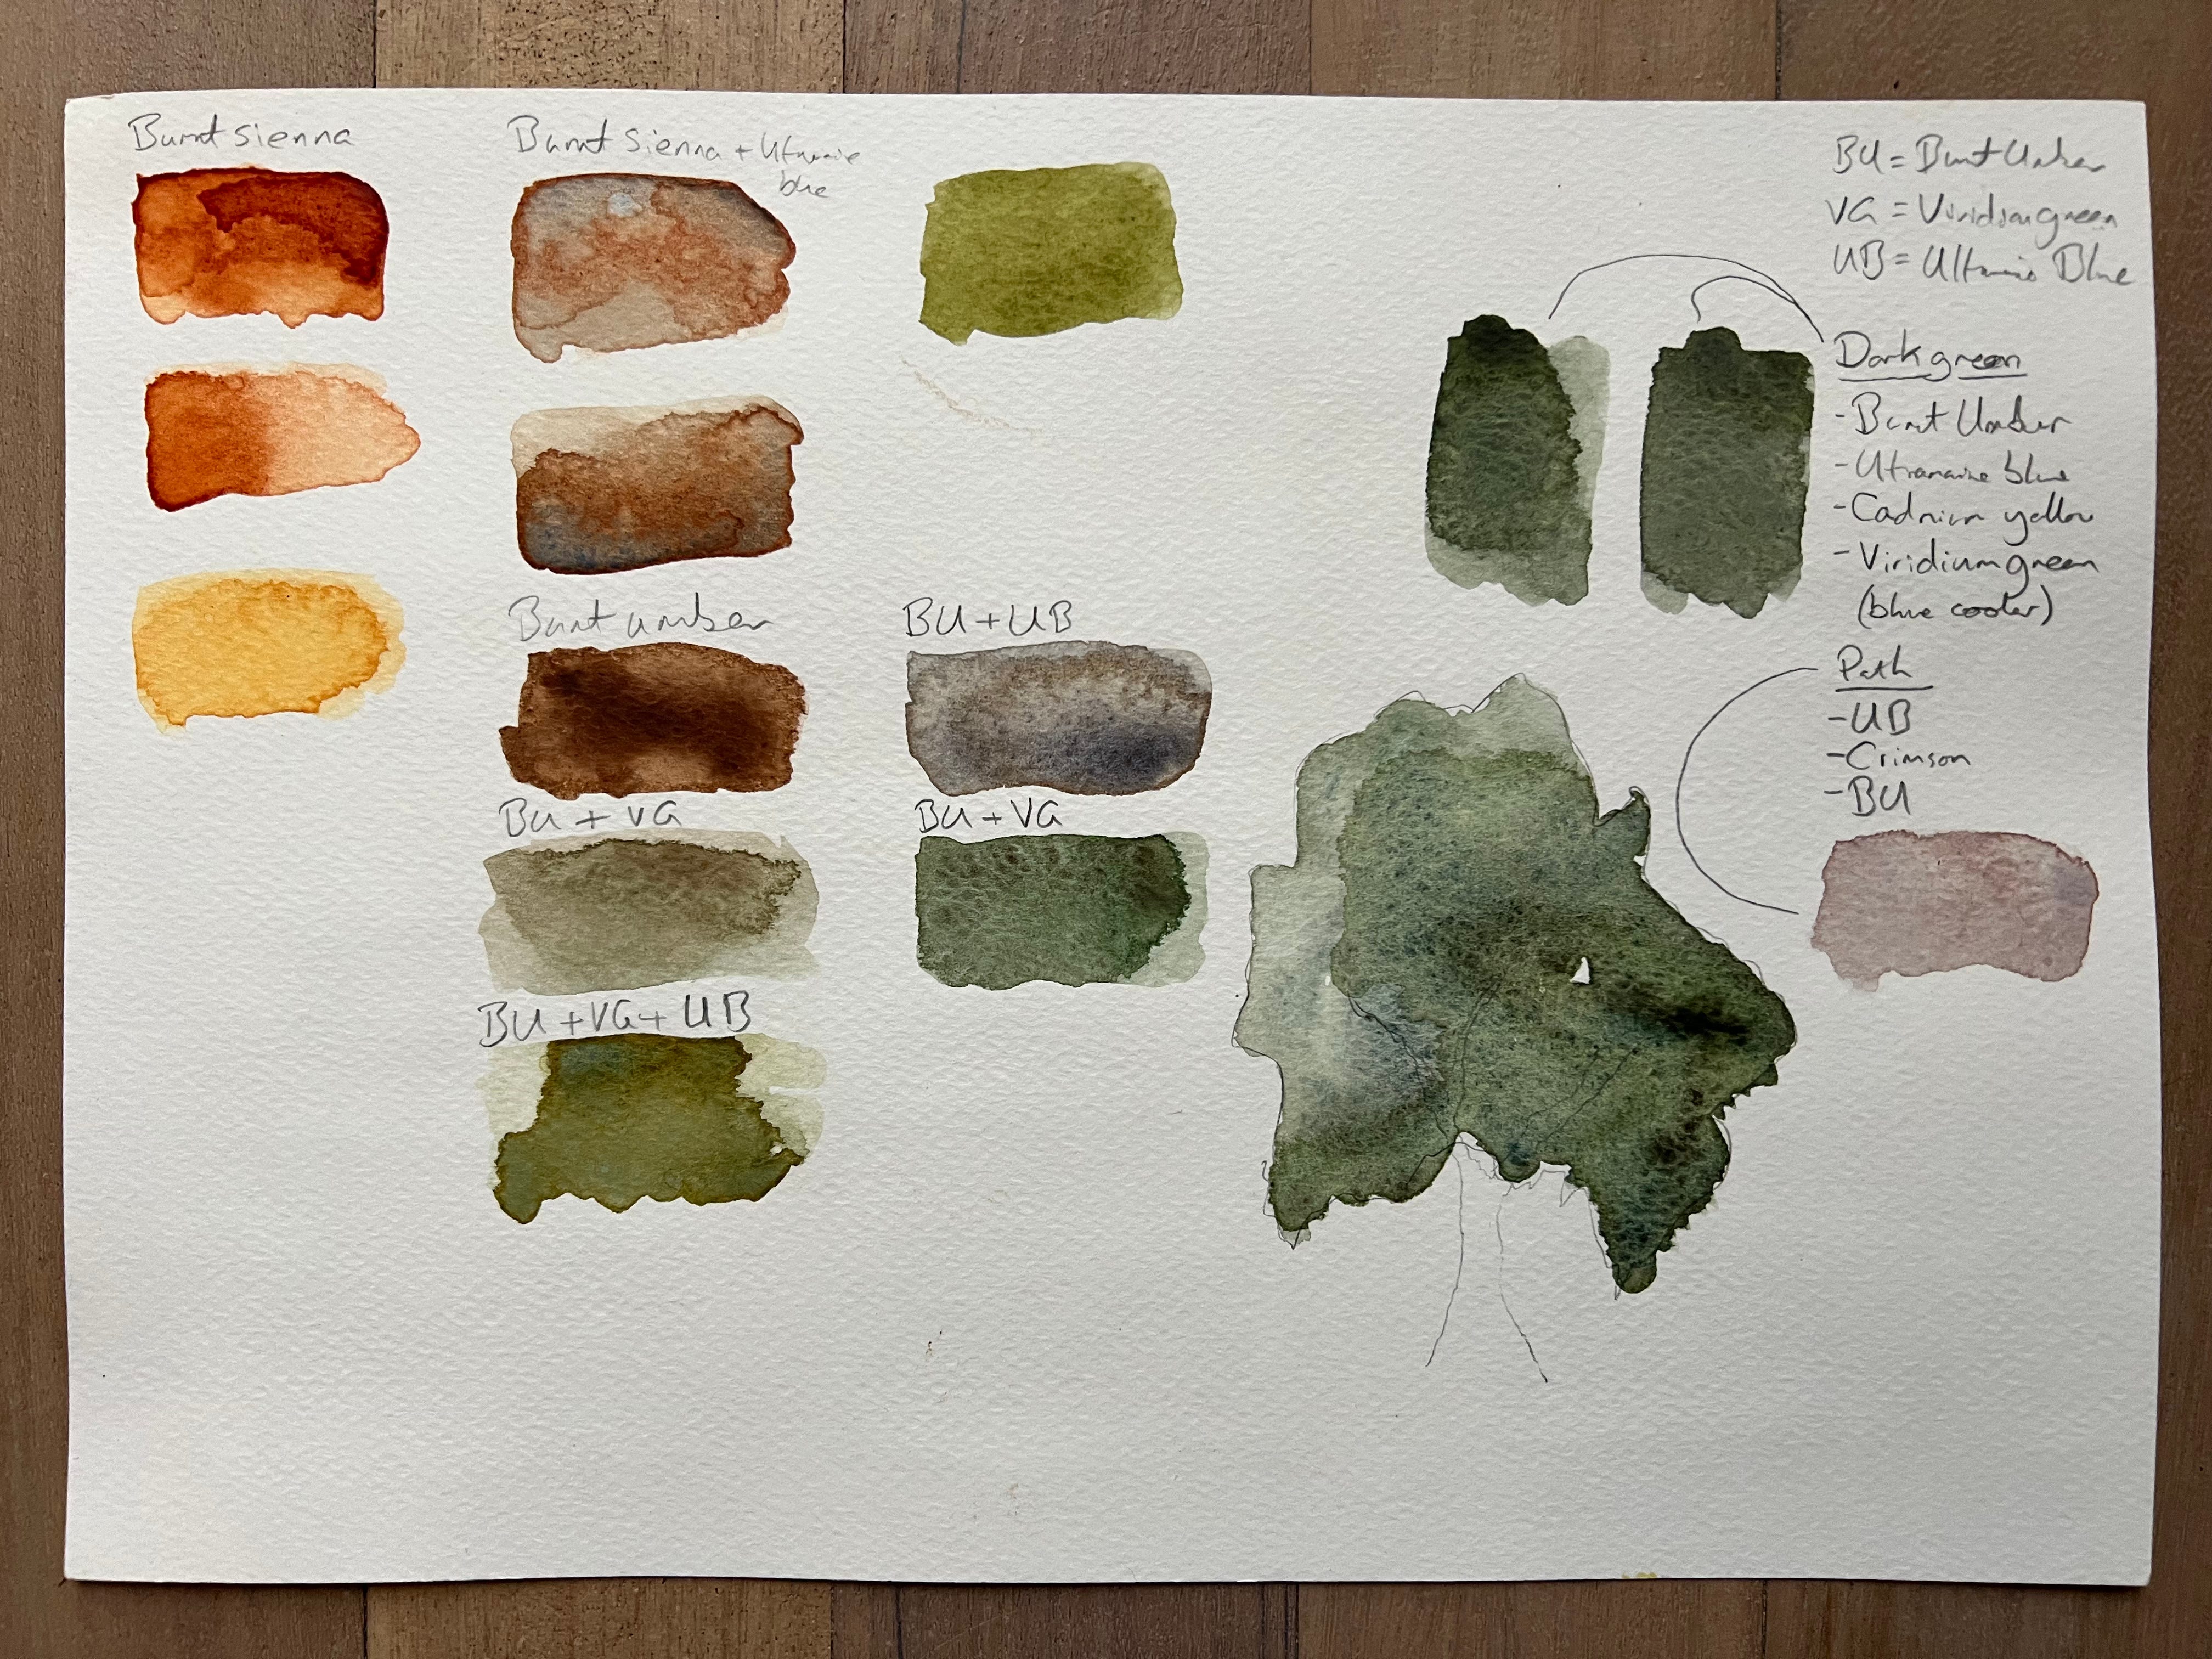 Burnt sienna
Burnt Sienna + Utramarie
blue
Burnt umber
BU + UB
BU + VG
BU + VG
BU + VG + UB
BU = Burnt Umber
VG = Viridian green
UB = Ultramarine Blue
Dark green
- Burnt Umber
- Utramarine blue
- Cadmium yellow
- Viridium green
(blue cooler)
Path
- UB
- Crimson
- BU